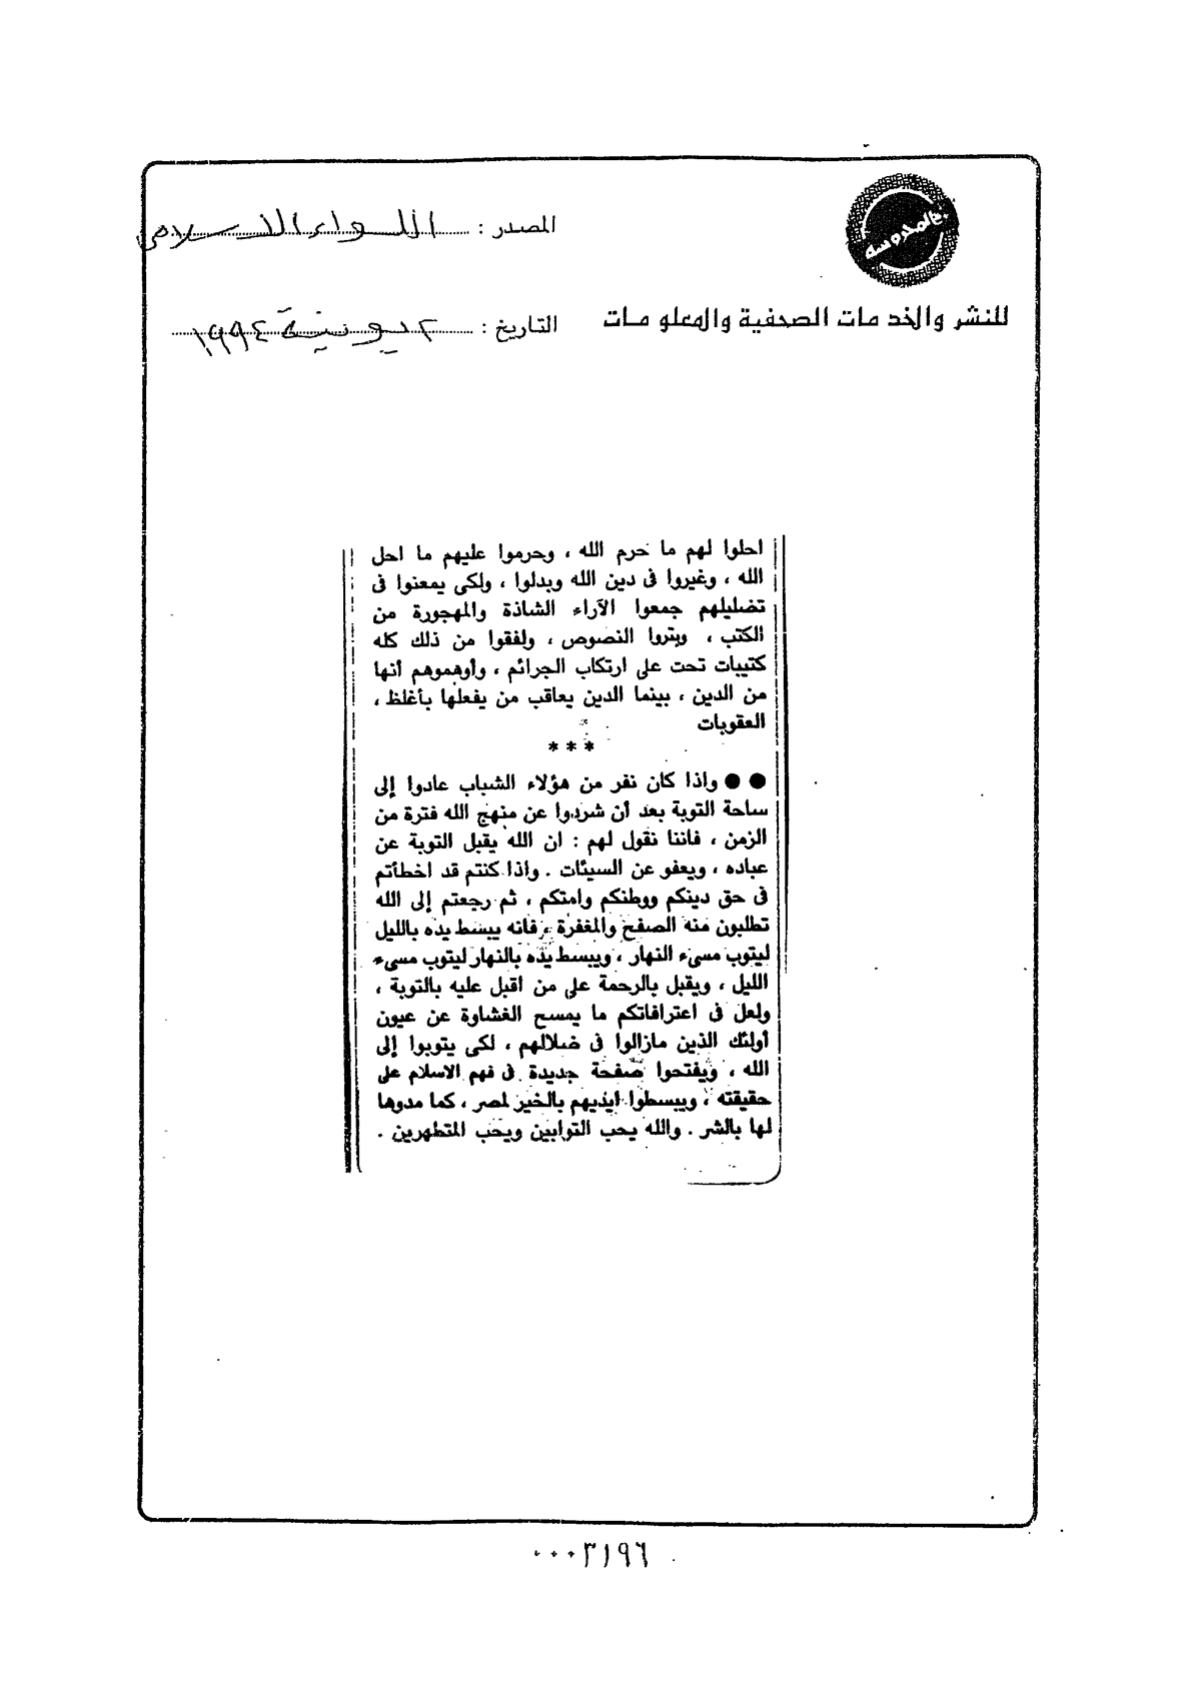 المحروسة
المصدر : اللواء الاسلامى
للنشر والخدمات الصحفية والمعلومات
التاريخ : ٢ يونية ١٩٩٤
احلوا لهم ما حرم الله ، وحرموا عليهم ما احل
الله ، وغيروا فى دين الله وبدلوا ، ولكى يمعنوا فى
تضليلهم جمعوا الآراء الشاذة والمهجورة من
الكتب ، وبتروا النصوص ، ولفقوا من ذلك كله
كتيبات تحث على ارتكاب الجرائم ، وأوهموهم أنها
من الدين ، بينما الدين يعاقب من يفعلها بأغلظ ،
العقوبات
***
●● واذا كان نفر من هؤلاء الشباب عادوا إلى
ساحة التوبة بعد أن شردوا عن منهج الله فترة من
الزمن ، فاننا نقول لهم : ان الله يقبل التوبة عن
عباده ، ويعفو عن السيئات . واذا كنتم قد اخطأتم
فى حق دينكم ووطنكم وامتكم ، ثم رجعتم إلى الله
تطلبون منه الصفح والمغفرة ، فانه يبسط يده بالليل
ليتوب مسىء النهار ، ويبسط يده بالنهار ليتوب مسىء
الليل ، ويقبل بالرحمة على من اقبل عليه بالتوبة ،
ولعل فى اعترافاتكم ما يمسح الغشاوة عن عيون
أولئك الذين مازالوا فى ضلالهم ، لكى يتوبوا إلى
الله ، ويفتحوا صفحة جديدة فى فهم الاسلام على
حقيقته ، ويبسطوا ايديهم بالخير لمصر ، كما مدوها
لها بالشر . والله يحب التوابين ويحب المتطهرين .
٠٠٠٣١٩٦